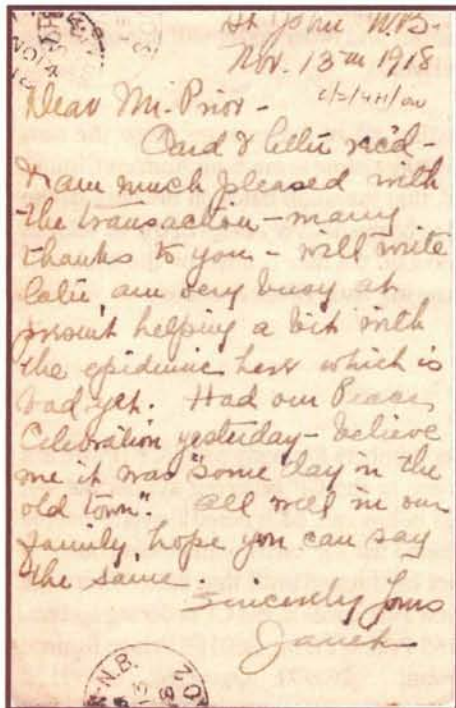 St John N.B.
Nov. 13th 1918
Dear Mr. Prior -
Card & letter rec'd -
& am much pleased with
the transaction - many
thanks to you - will write
later, am very busy at
present helping a bit with
the epidemic here which is
bad yet. Had our Peace
Celebration yesterday - believe
me it was "some day in the
old town". All well in our
family, hope you can say
the same.
Sincerely Yours
N.B.